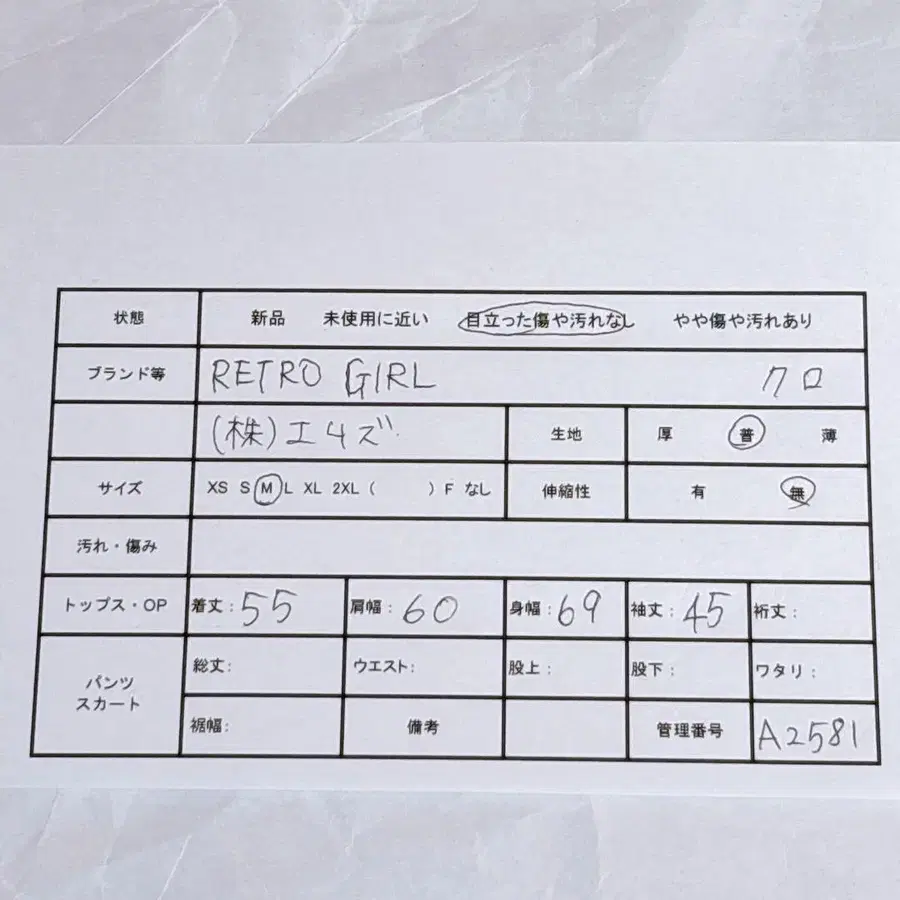 状態 新品 未使用に近い 目立った傷や汚れなし やや傷や汚れあり
ブランド等 RETRO GIRL クロ
(株)エムズ 生地 厚 普 薄
サイズ XS S M L XL 2XL ( ) F なし 伸縮性 有 無
汚れ・傷み
トップス・OP 着丈:55 肩幅:60 身幅:69 袖丈:45 裄丈:
パンツ 総丈: ウエスト: 股上: 股下: ワタリ:
スカート
裾幅: 備考 管理番号 A2581